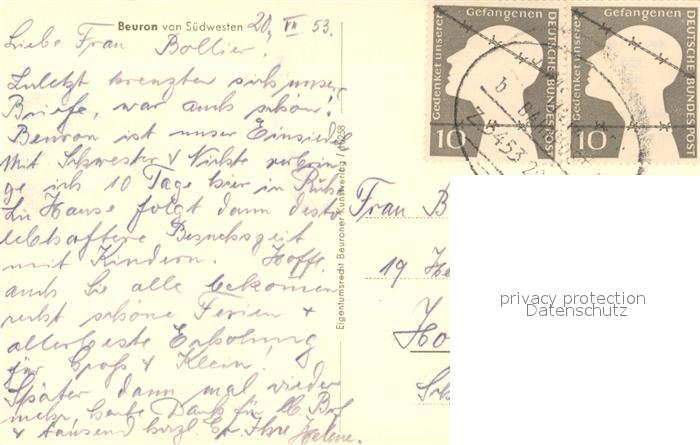 Beuron von Südwesten 20. VII 53.
Liebe Frau Bollier!
Zuletzt kreuzten sich unsere
Briefe, war auch schön!
Beuron ist unser Einsiedel
Mit Schwester & Nichte verbrin-
ge ich 10 Tage hier in Ruhe
Zu Hause folgt dann desto
lebhaftere Besuchszeit
mit Kindern. Hoffe
auch Sie alle bekommen
recht schöne Ferien +
allerbeste Erholung
für Groß & Klein.
Später dann mal wieder
mehr, heute Dank für lb. Brf
& tausend herzl. Gr. Ihre Helene.
Eigentumsrecht Beuroner Kunstverlag /
Gedenket unserer Gefangenen
DEUTSCHE BUNDESPOST
10
Gedenket unserer Gefangenen
DEUTSCHE BUNDESPOST
10
b
Z.5453
Frau B
19
Ho
privacy protection
Datenschutz